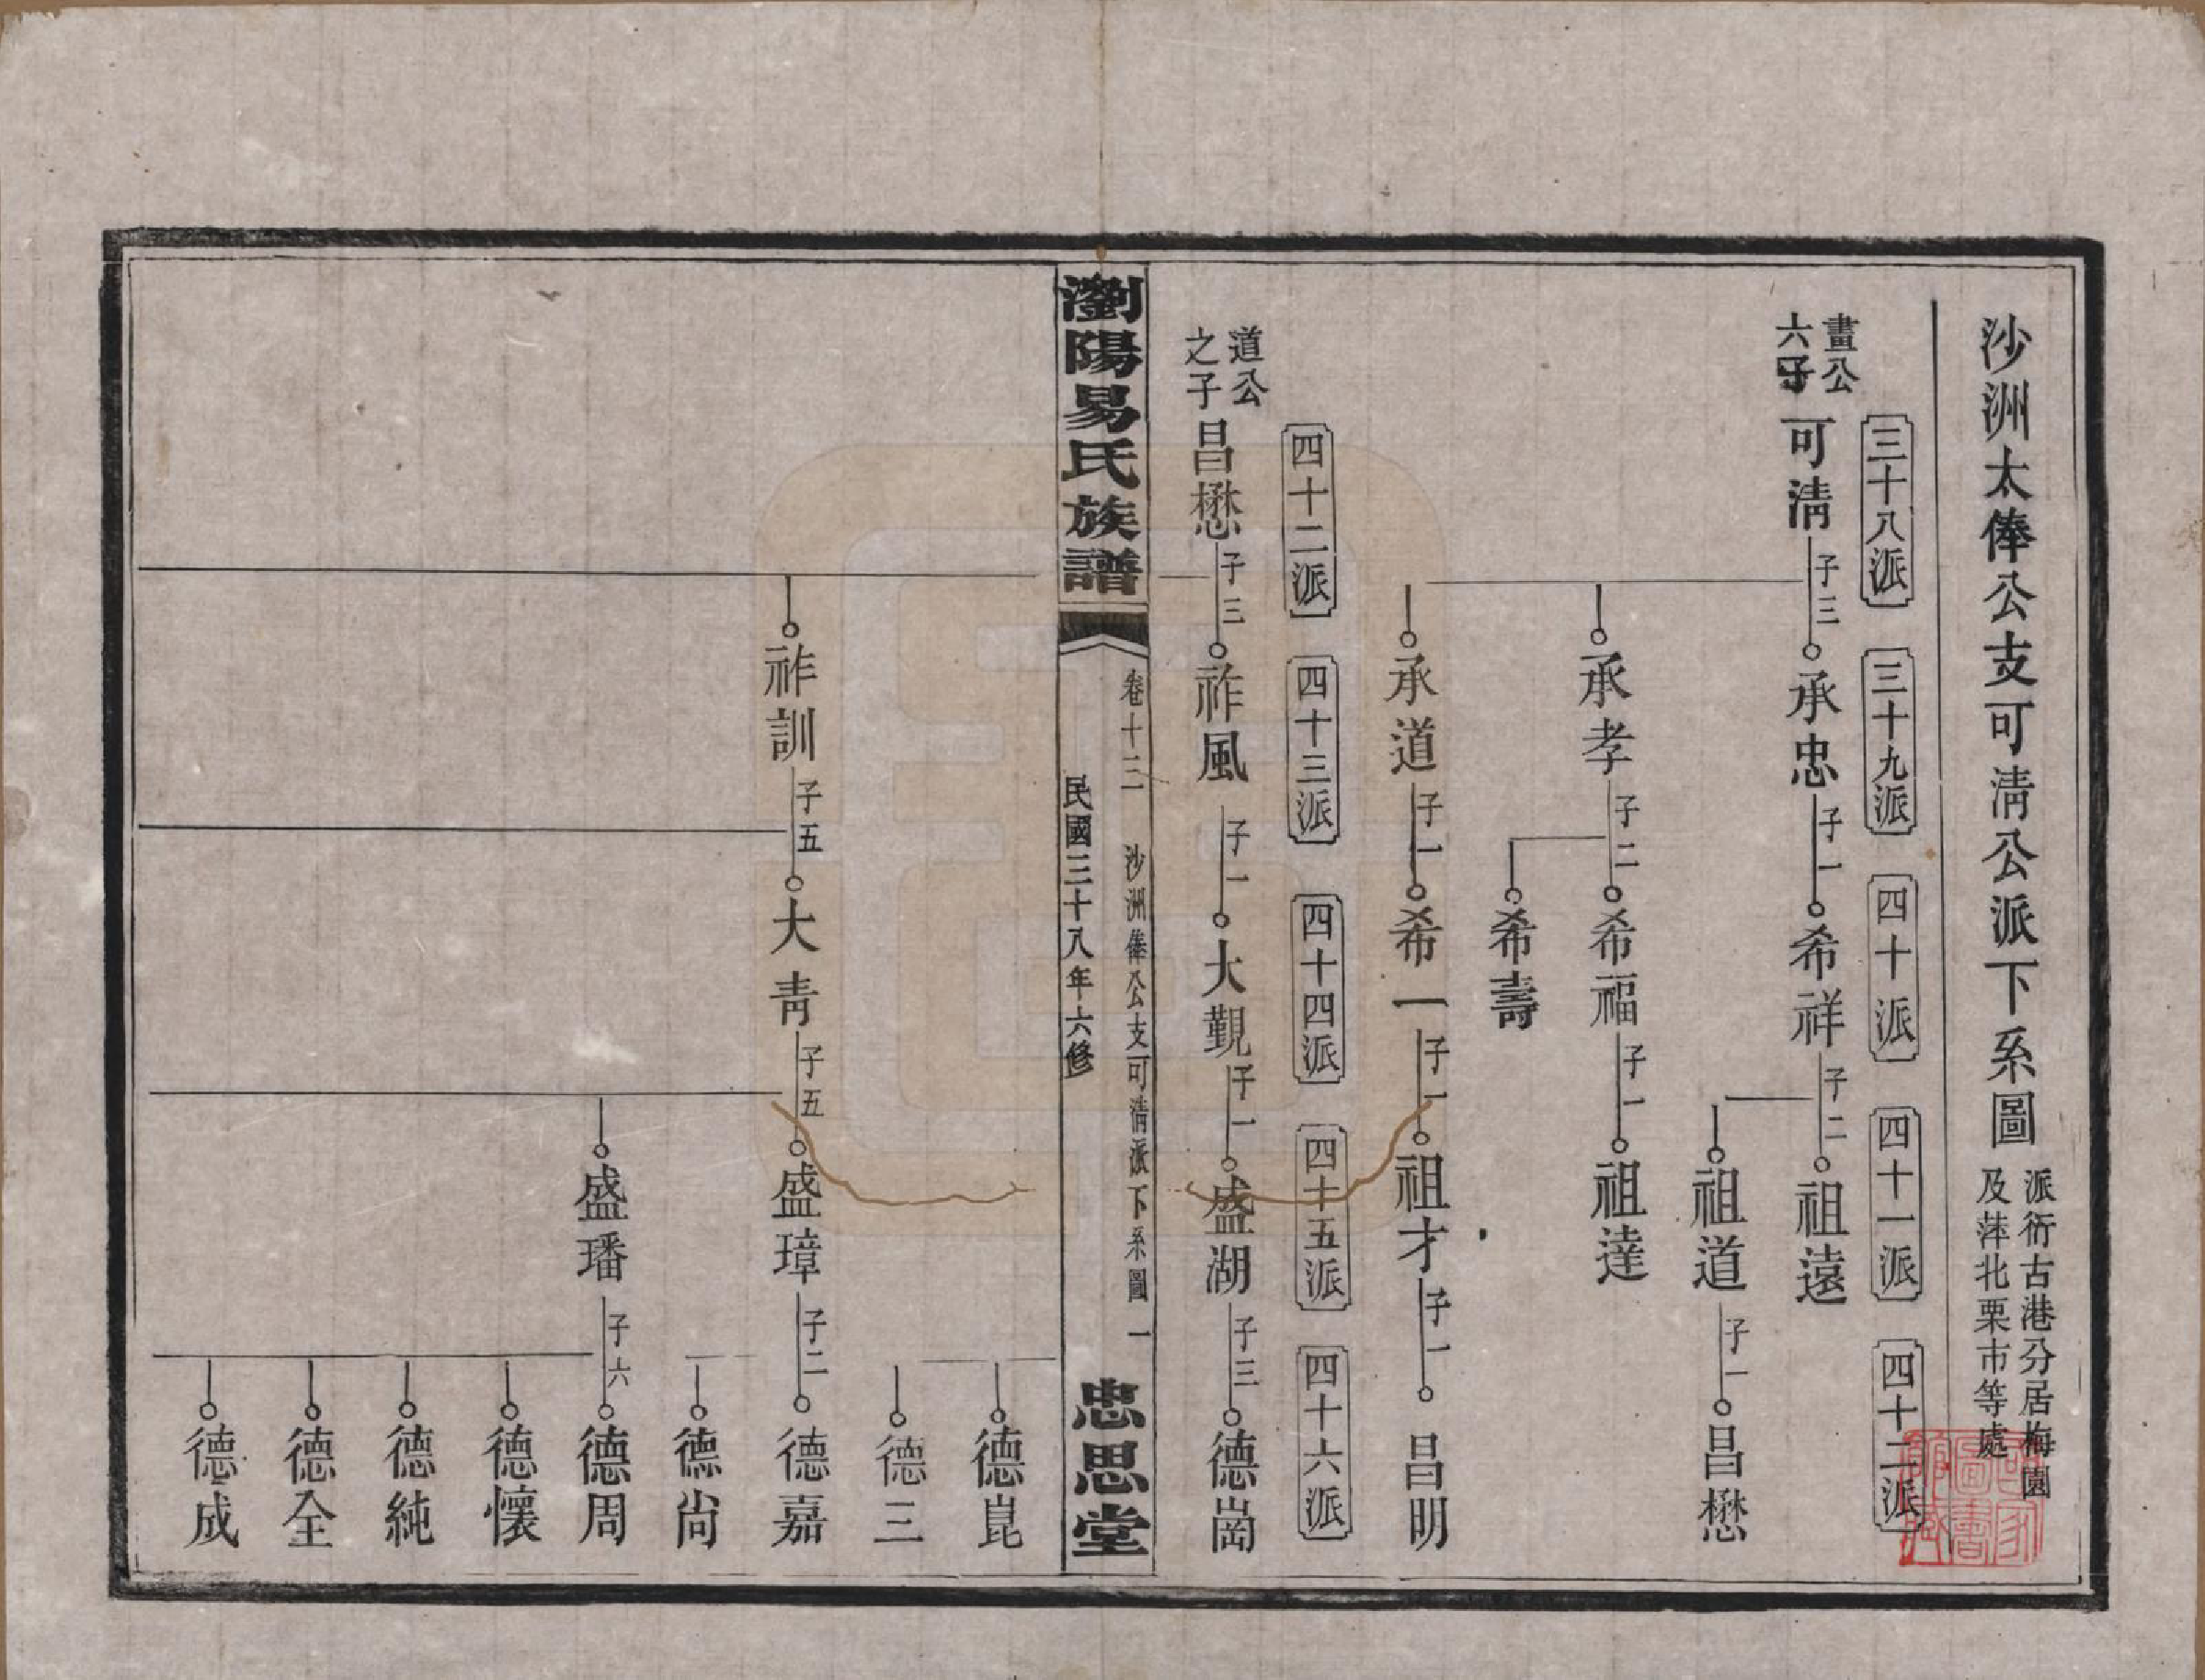 沙洲太俸公支可清公派下系圖
派衍古港分居梅園
及萍北栗市等處
三十八派
三十九派
四十派
四十一派
四十二派
畫公
六子
可清
子三
承忠
子一
希祥
子二
祖遠
祖道
子一
昌懋
承孝
子二
希福
子一
祖達
希壽
承道
子一
希一
子一
祖才
子一
昌明
四十二派
四十三派
四十四派
四十五派
四十六派
道公
之子
昌懋
子三
祚風
子一
大觀
子一
盛湖
子三
德崗
瀏陽易氏族譜
卷十三
沙洲俸公支可清派下系圖
一
民國三十八年六修
忠思堂
德崑
德三
祚訓
子五
大青
子五
盛璋
子二
德嘉
德尚
盛璠
子六
德周
德懷
德純
德全
德成